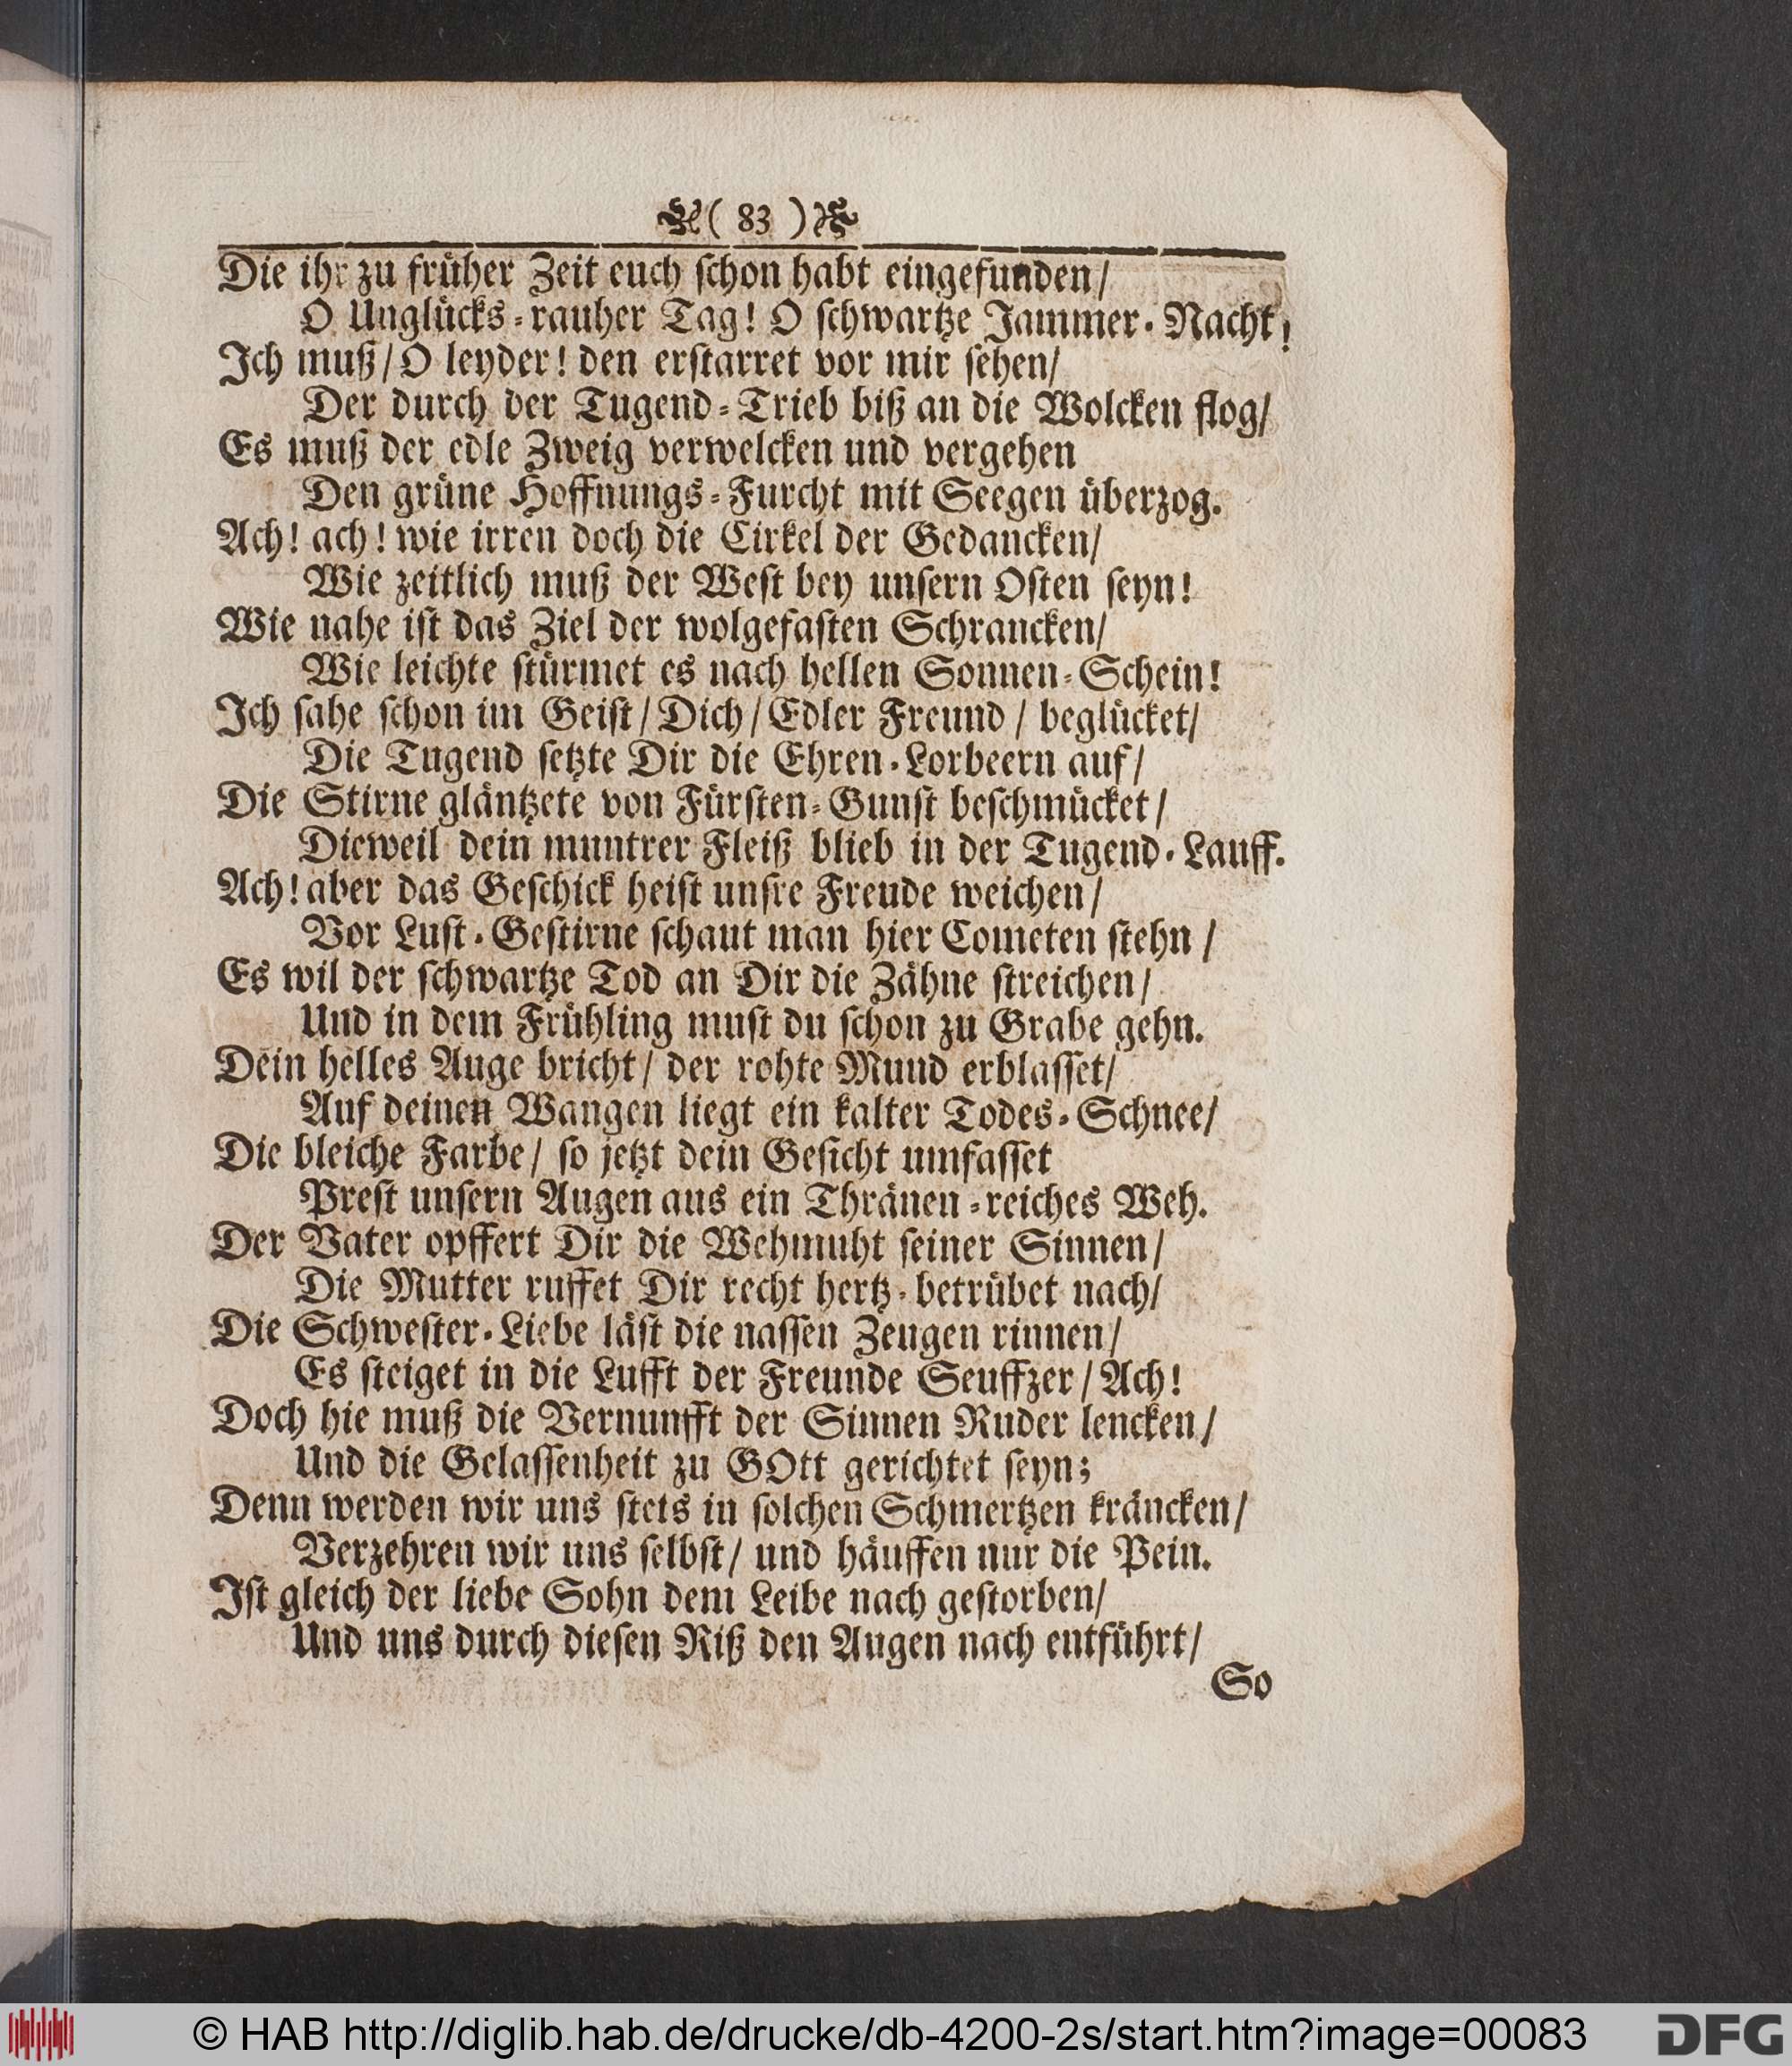 ( 83 )
Die ihr zu früher Zeit euch schon habt eingefunden/
O Unglücks-rauher Tag! O schwartze Jammer-Nacht!
Ich muß/ O leyder! den erstarret vor mir sehen/
Der durch der Tugend-Trieb biß an die Wolcken flog/
Es muß der edle Zweig verwelcken und vergehen
Den grüne Hoffnungs-Furcht mit Seegen überzog.
Ach! ach! wie irren doch die Cirkel der Gedancken/
Wie zeitlich muß der West bey unsern Osten seyn!
Wie nahe ist das Ziel der wolgefasten Schrancken/
Wie leichte stürmet es nach hellen Sonnen-Schein!
Ich sahe schon im Geist/ Dich/ Edler Freund / beglücket/
Die Tugend setzte Dir die Ehren-Lorbeern auf/
Die Stirne gläntzete von Fürsten-Gunst beschmücket/
Dieweil dein muntrer Fleiß blieb in der Tugend-Lauff.
Ach! aber das Geschick heist unsre Freude weichen/
Vor Lust-Gestirne schaut man hier Cometen stehn /
Es wil der schwartze Tod an Dir die Zähne streichen/
Und in dem Frühling must du schon zu Grabe gehn.
Dein helles Auge bricht/ der rohte Mund erblasset/
Auf deinen Wangen liegt ein kalter Todes-Schnee/
Die bleiche Farbe/ so jetzt dein Gesicht umfasset
Prest unsern Augen aus ein Thränen-reiches Weh.
Der Vater opffert Dir die Wehmuht seiner Sinnen/
Die Mutter ruffet Dir recht hertz-betrübet nach/
Die Schwester-Liebe läst die nassen Zeugen rinnen/
Es steiget in die Lufft der Freunde Seuffzer/ Ach!
Doch hie muß die Vernunfft der Sinnen Ruder lencken/
Und die Gelassenheit zu GOtt gerichtet seyn;
Denn werden wir uns stets in solchen Schmertzen kräncken/
Verzehren wir uns selbst/ und häuffen nur die Pein.
Ist gleich der liebe Sohn dem Leibe nach gestorben/
Und uns durch diesen Riß den Augen nach entführt/
So
© HAB http://diglib.hab.de/drucke/db-4200-2s/start.htm?image=00083
DFG